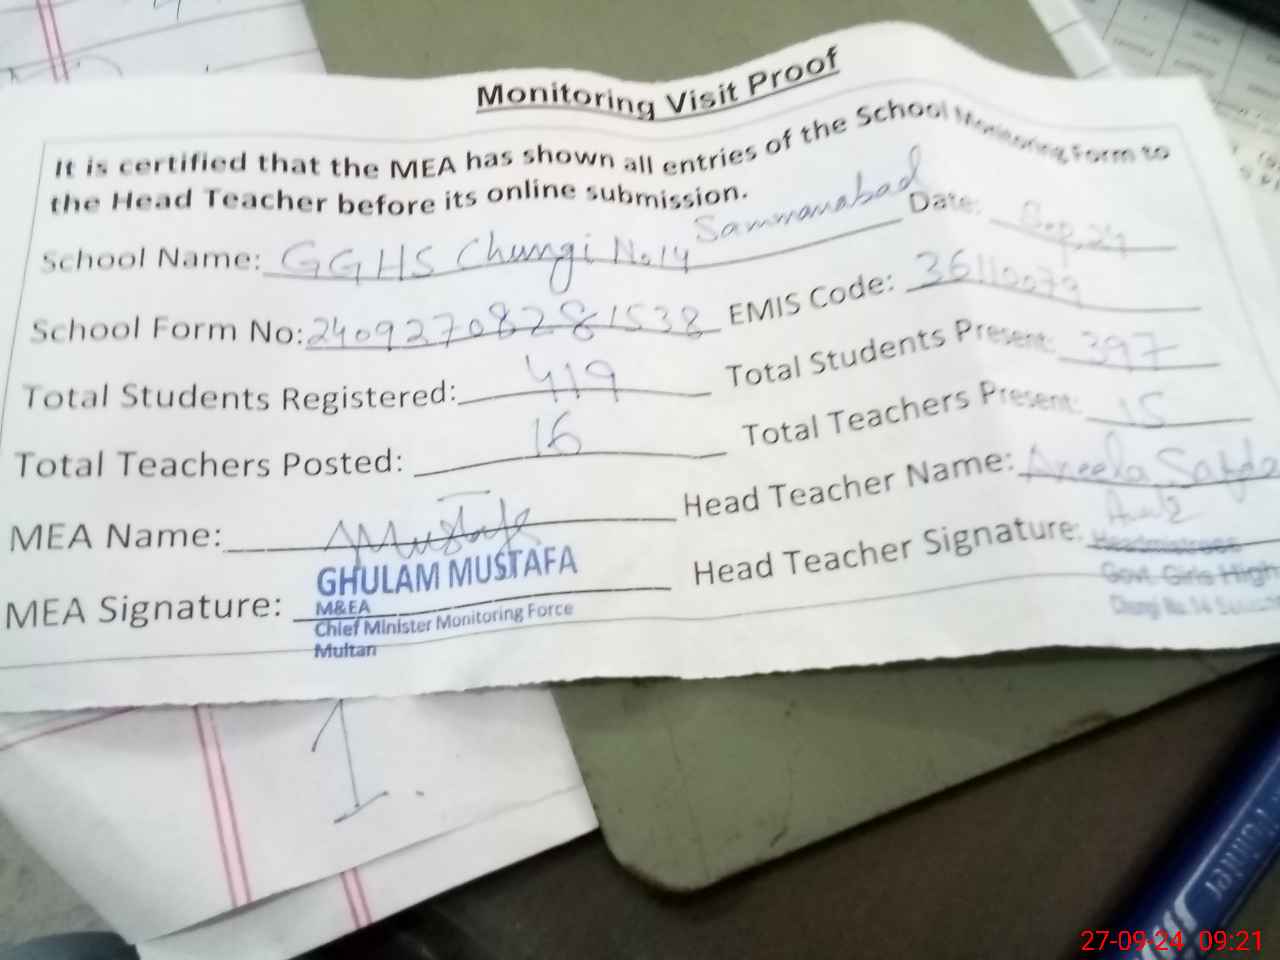 Monitoring Visit Proof
It is certified that the MEA has shown all entries of the School Monitoring Form to
the Head Teacher before its online submission.
School Name: GGHS Chungi No.14 Sammanabad Date: Sep, 24
School Form No: 2409270828281538 EMIS Code: 36110079
Total Students Registered: 419 Total Students Present: 397
Total Teachers Posted: 16 Total Teachers Present: 15
MEA Name: Head Teacher Name: Aneela
MEA Signature: Head Teacher Signature:
GHULAM MUSTAFA
M&EA
Chief Minister Monitoring Force
Multan
Headmistress
Govt. Girls High
Chungi No. 14
1.
27-09-24 09:21